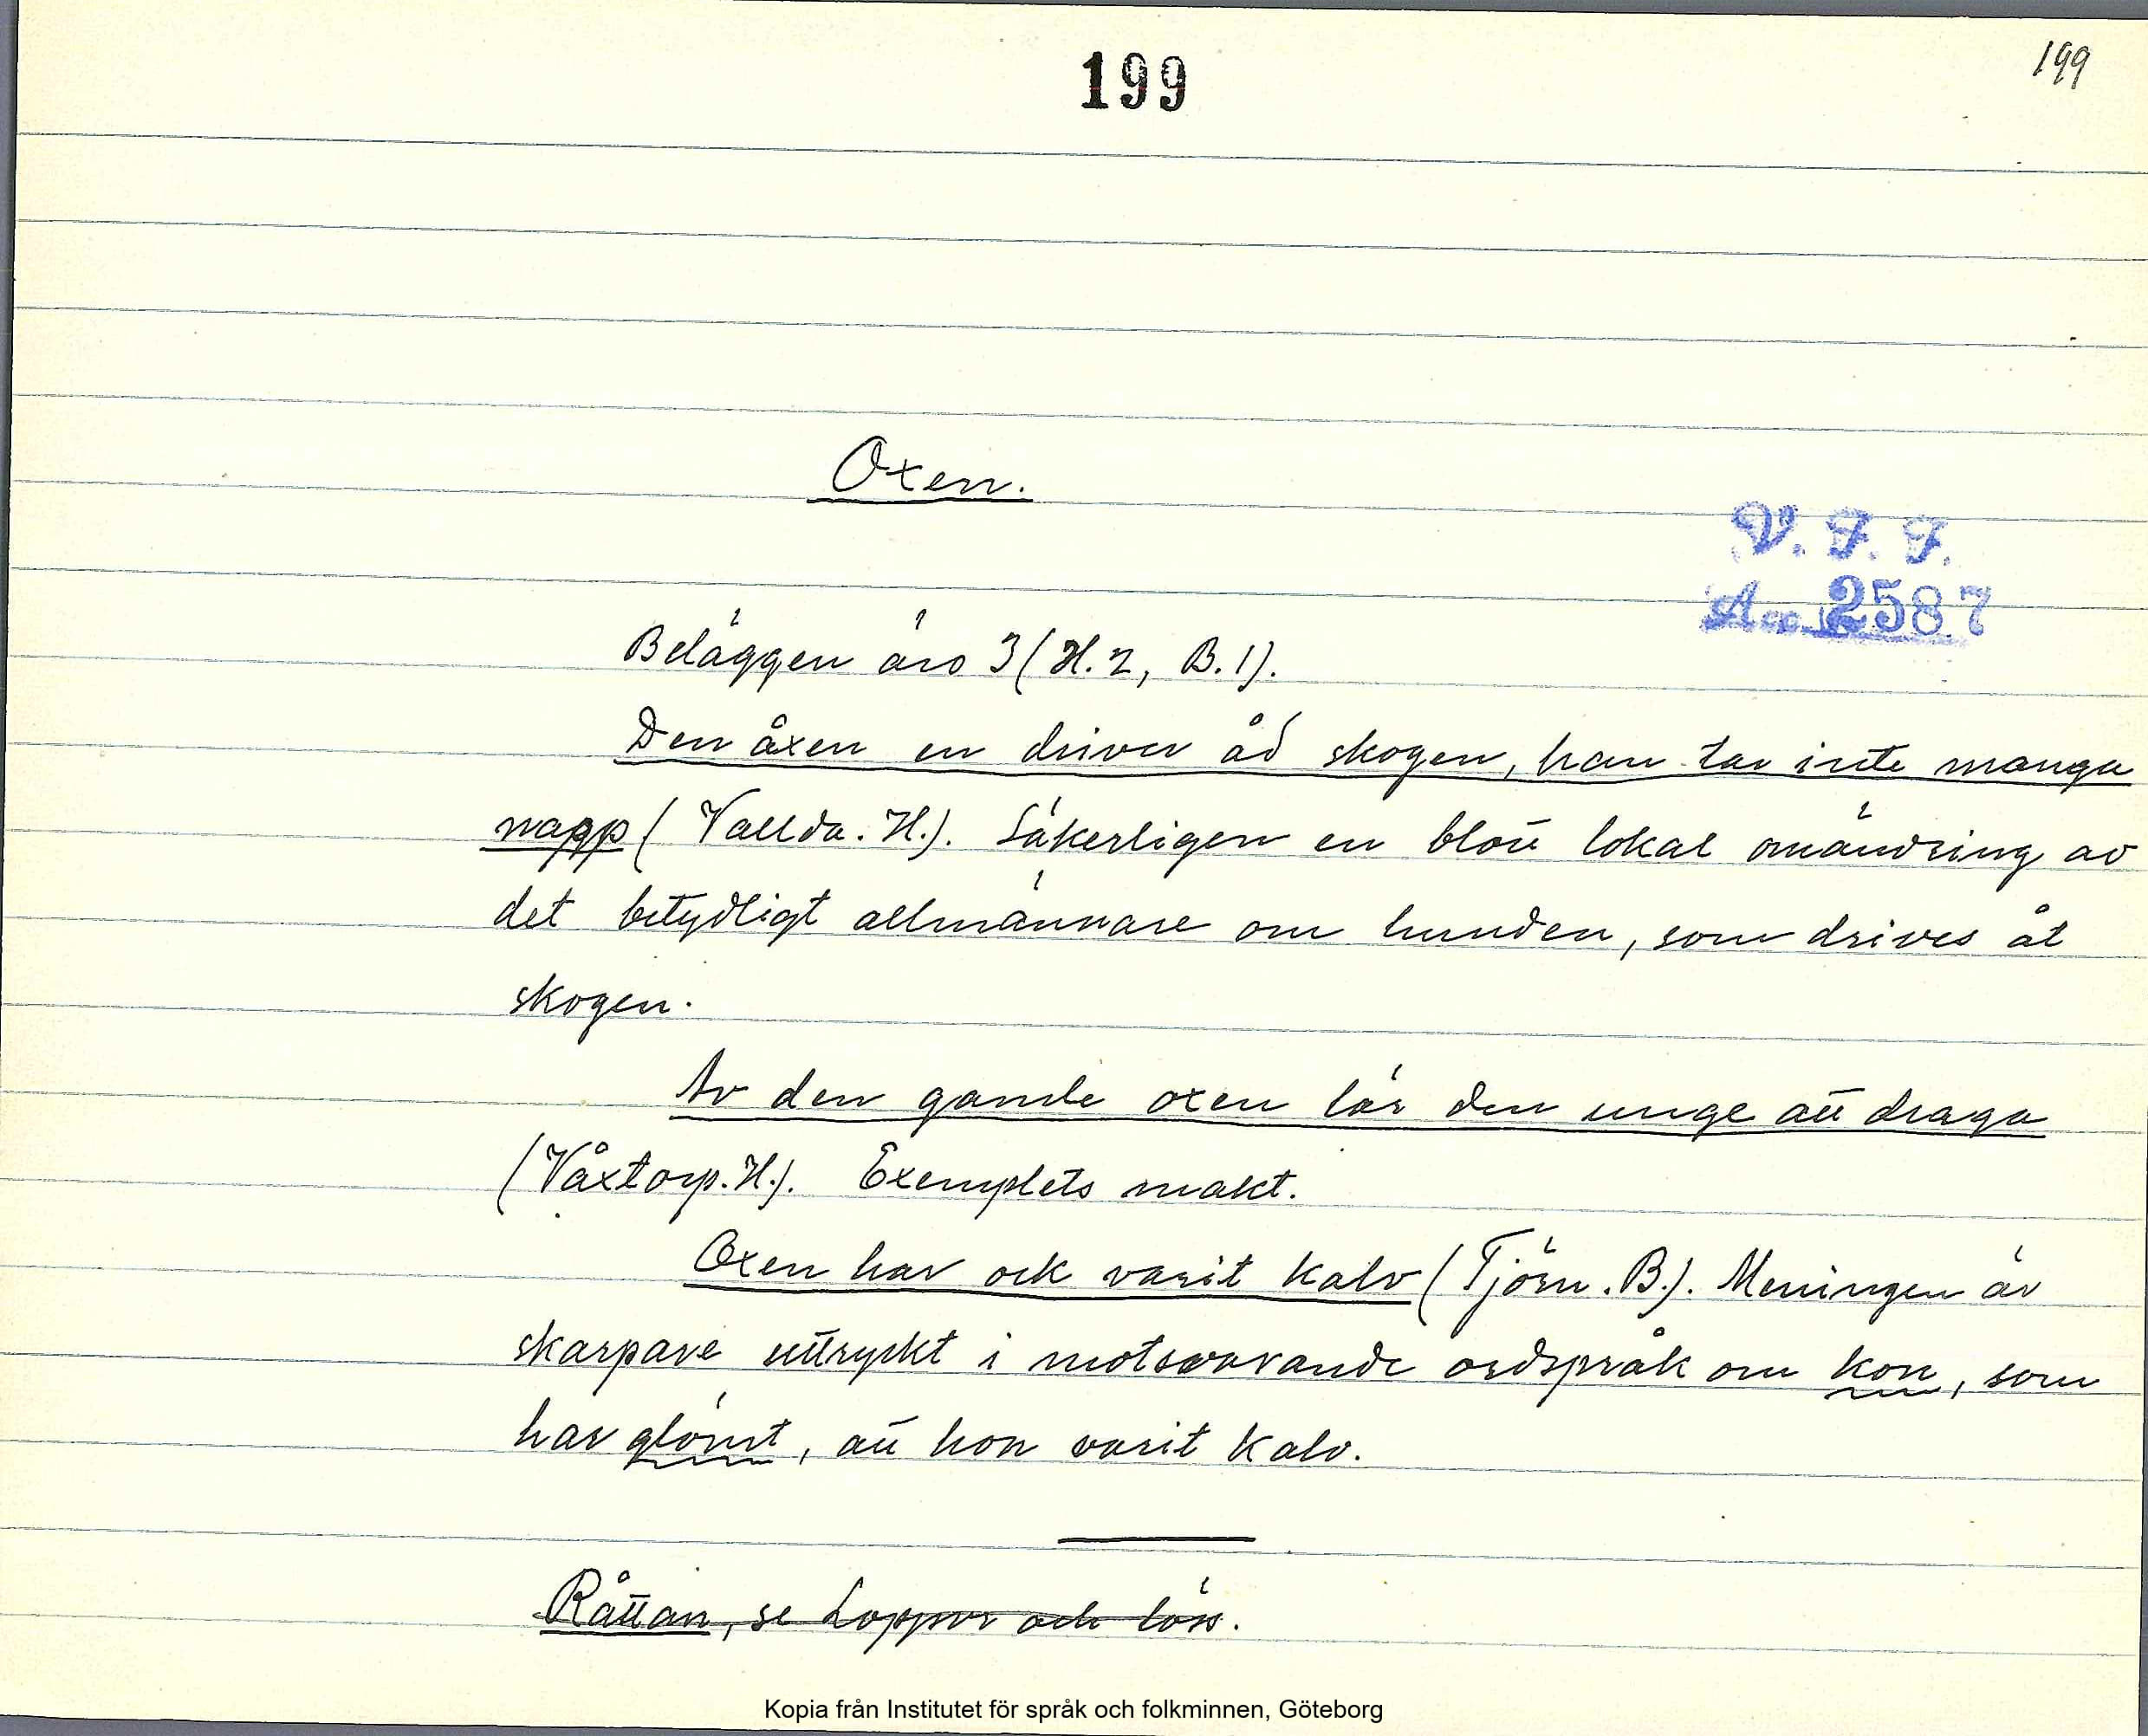 199
199
Oxen.
V. F. F.
Acc. 2587
Beläggen äro 3 (H. 2, B. 1).
Den åxen en driver åd skogen, han tar inte manga
napp (Vallda. H.). Säkerligen en blott lokal omändring av
det betydligt allmännare om hunden, som drives åt
skogen.
Av den gamle oxen lär den unge att draga
(Våxtorp. H.). Exemplets makt.
Oxen har ock varit kalv (Tjörn. B.). Meningen är
skarpare uttryckt i motsvarande ordspråk om kon, som
har glömt, att hon varit kalv.
Råttan, se Loppor och löss.
Kopia från Institutet för språk och folkminnen, Göteborg